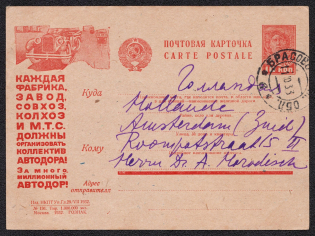 ПОЧТОВАЯ КАРТОЧКА
CARTE POSTALE
КАЖДАЯ
ФАБРИКА,
ЗАВОД,
СОВХОЗ,
КОЛХОЗ
И М.Т.С.
ДОЛЖНЫ
ОРГАНИЗОВАТЬ
КОЛЛЕКТИВ
АВТОДОРА!
ЗА МНОГО-
МИЛЛИОННЫЙ
АВТОДОР!
БРАСОВО
Куда
Голландия
Hollande
Amsterdam (Zuid)
Кому
Roompotstraat 5 II
Herrn Dr. A. Horodisch
Адрес
отправителя